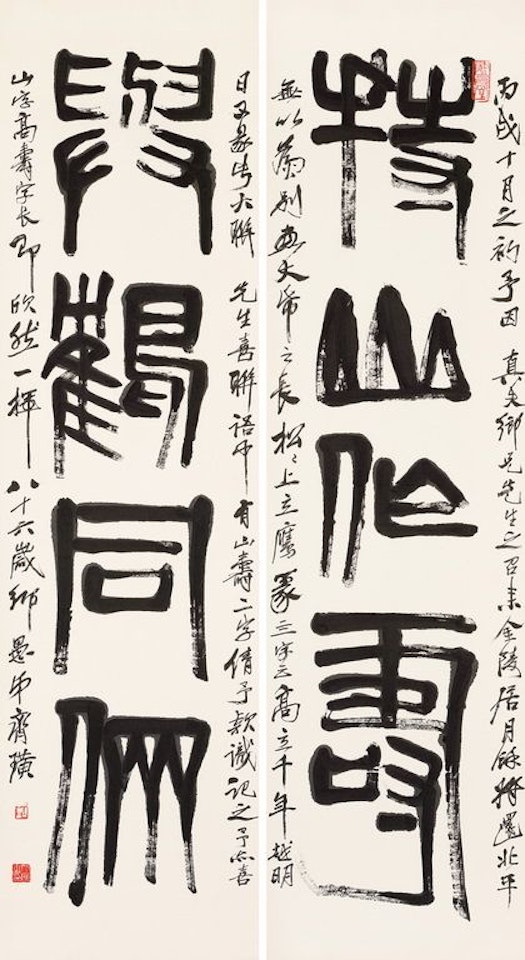 持山作壽
丙戌十月之初予因 真夫鄉兄先生之召來金陵居月餘將還北平
無以為別畫大幅之長松〻上立鷹篆三字云高立千年越明
與鶴同
日又篆此大聯 先生喜聯語中有山壽二字倩予款識記之予亦喜
山字高壽字長即欣然一揮 八十六歲鄉愚弟齊璜